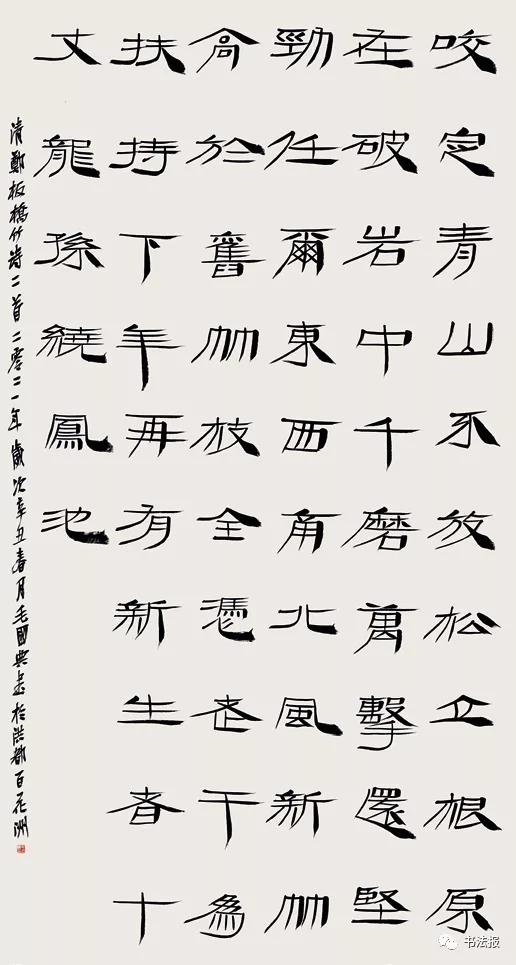 咬定青山不放松立根原
在破岩中千磨萬擊還堅
勁任爾東西南北風新竹
高於舊竹枝全憑老干為
扶持下年再有新生者十
丈龍孫繞鳳池
清鄭板橋竹詩二首二零二一年歲次辛丑春月毛國典書於洪都百花洲
书法报